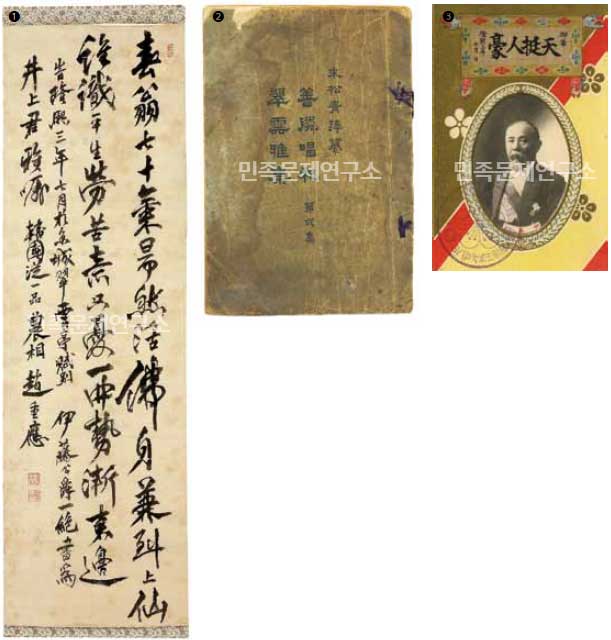 ❶
春翁七十氣昂然活佛身兼到上仙
誰識平生勞苦意只憂西勢漸東邊
旹隆熙三年七月於京城翠雲亭賦別 伊藤公爵一絶書爲
井上君雅囑 韓國從一品農相趙重應
민족문제연구소
❷
末松青萍纂
善隣唱和 第弐集
翠雲雅集
민족문제연구소
❸
御筆
天挺人豪
민족문제연구소